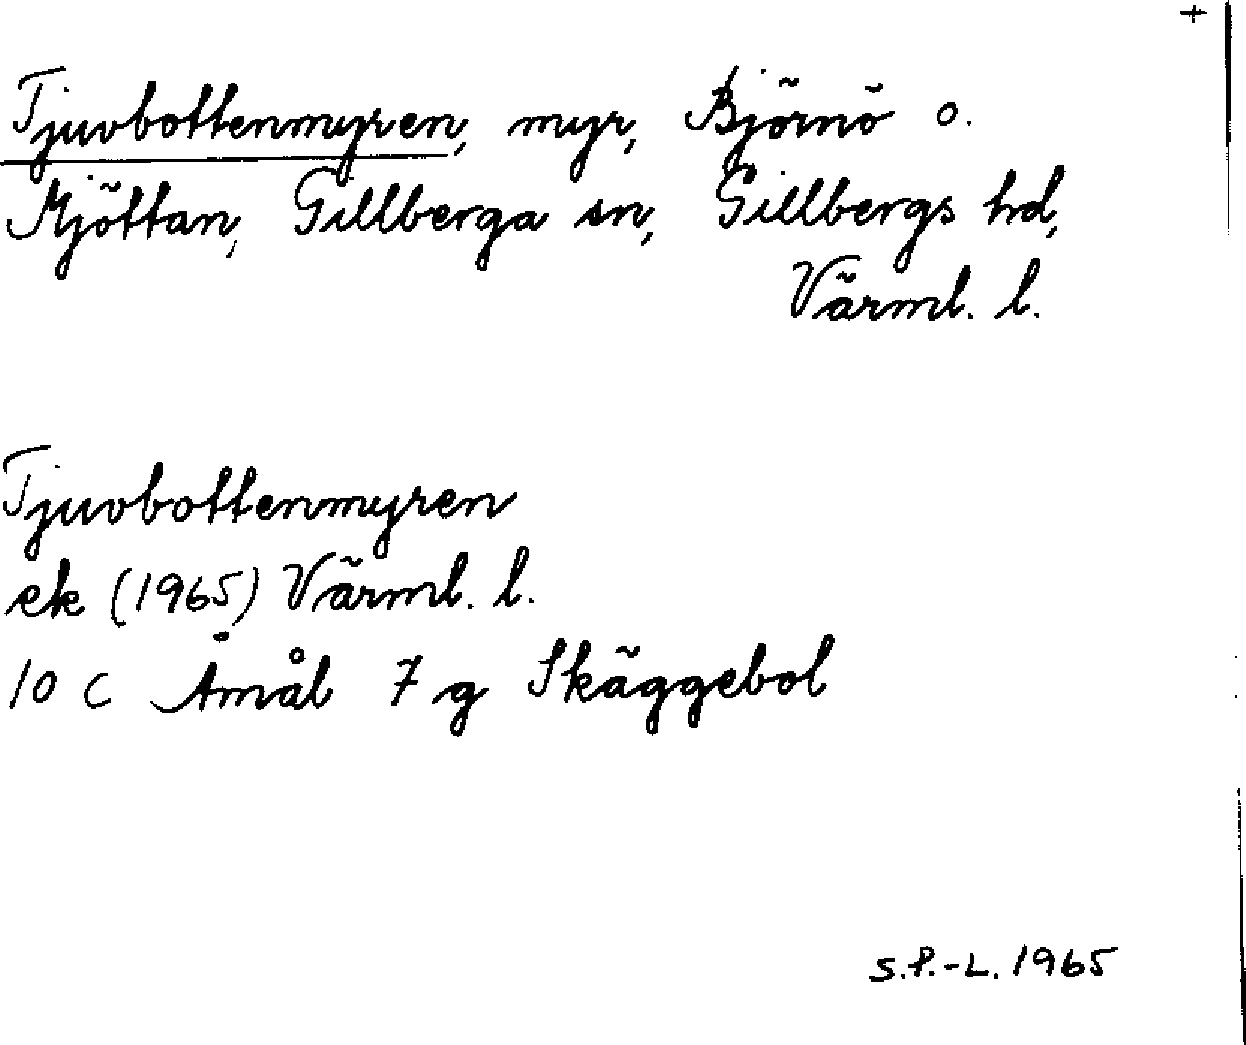 +
Tjuvbottenmyren, myr, Björnö o.
Mjöttan, Gillberga sn, Gillbergs hd,
Värml. l.
Tjuvbottenmyren
ek (1965) Värml. l.
10 C Åmål 7 g Skäggebol
S.P.-L. 1965